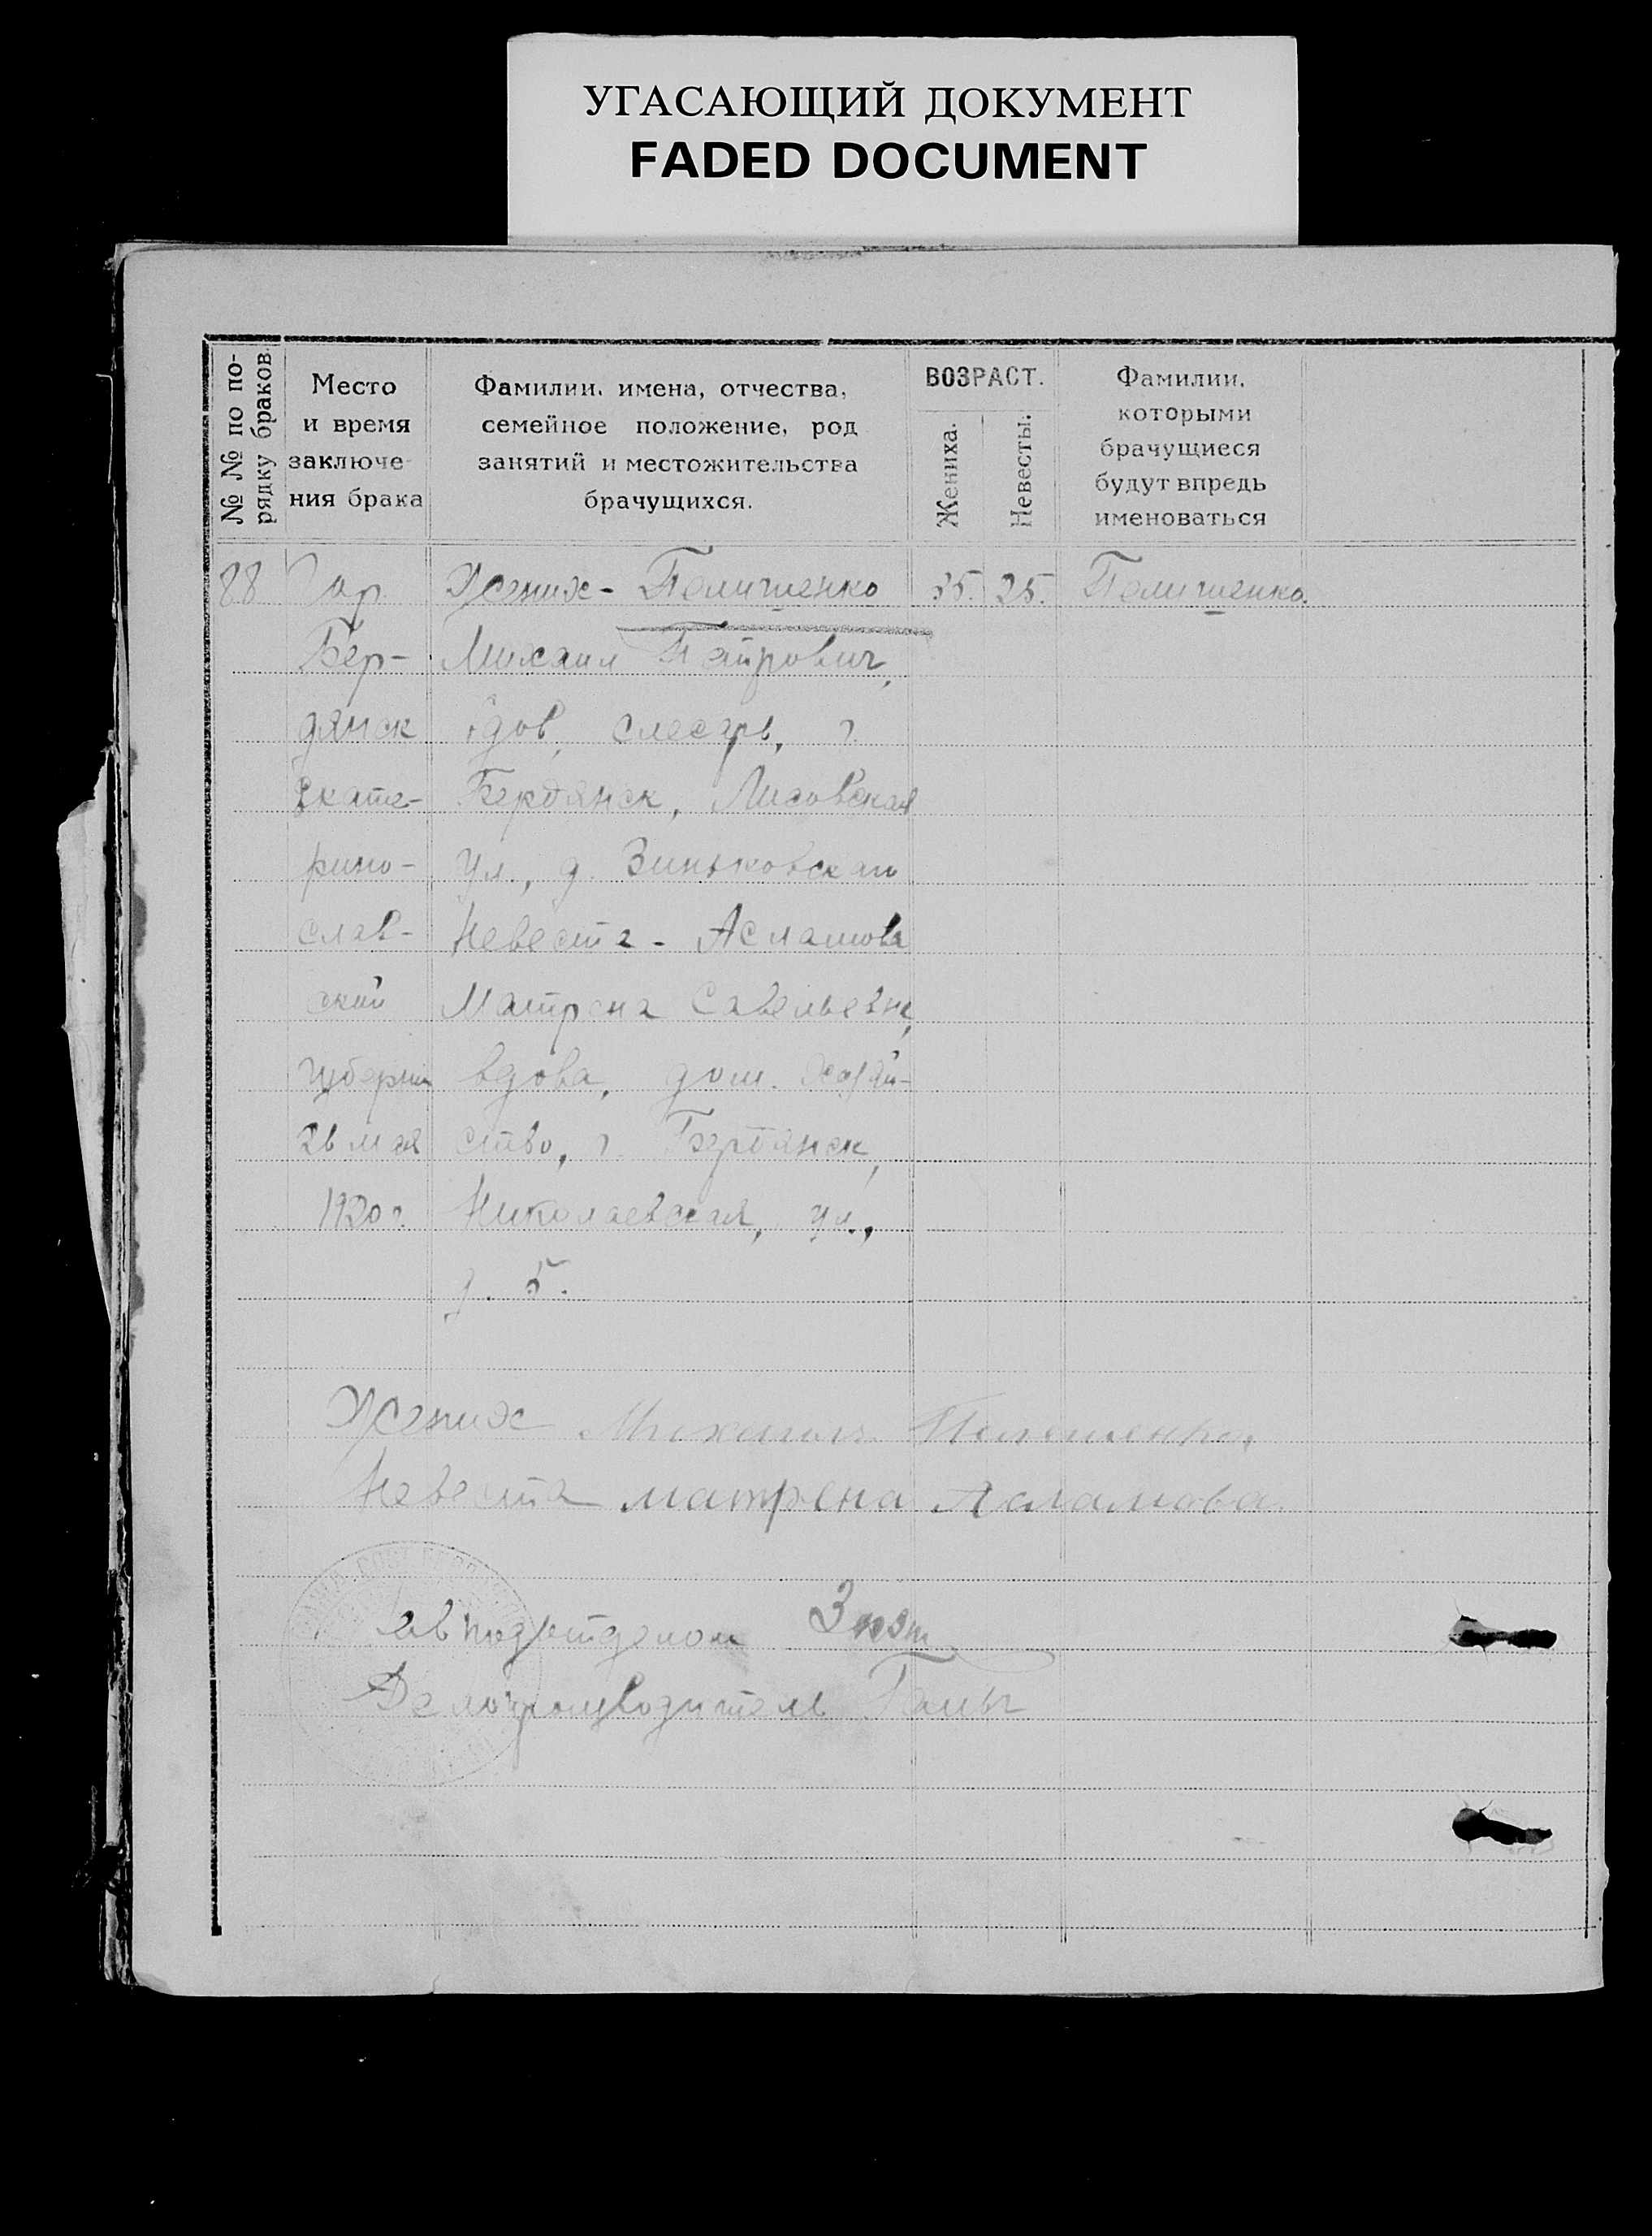 УГАСАЮЩИЙ ДОКУМЕНТ
FADED DOCUMENT
№ № по по-
рядку браков.
Место
и время
заключе-
ния брака
Фамилии, имена, отчества,
семейное положение, род
занятий и местожительства
брачущихся.
ВОЗРАСТ.
Жениха.
Невесты.
Фамилии,
которыми
брачущиеся
будут впредь
именоваться
88
Гор
Бер-
дянск
Екате-
рино-
слав-
ский
губерни
26 мая
1920 г.
Жених - Полишенко
Михаил Петрович,
вдов, слесарь, г.
Бердянск, Лисовская
ул., д. Зиньковскаго
Невеста - Асламова
Матрена Савельевна,
вдова, дом. хозяй-
ство, г. Бердянск,
Николаевская, ул.,
д. 5.
35.
25.
Полишенко.
Жених Михаил
Невеста матрена Асламова
Зав подотделом
Делопроизводитель